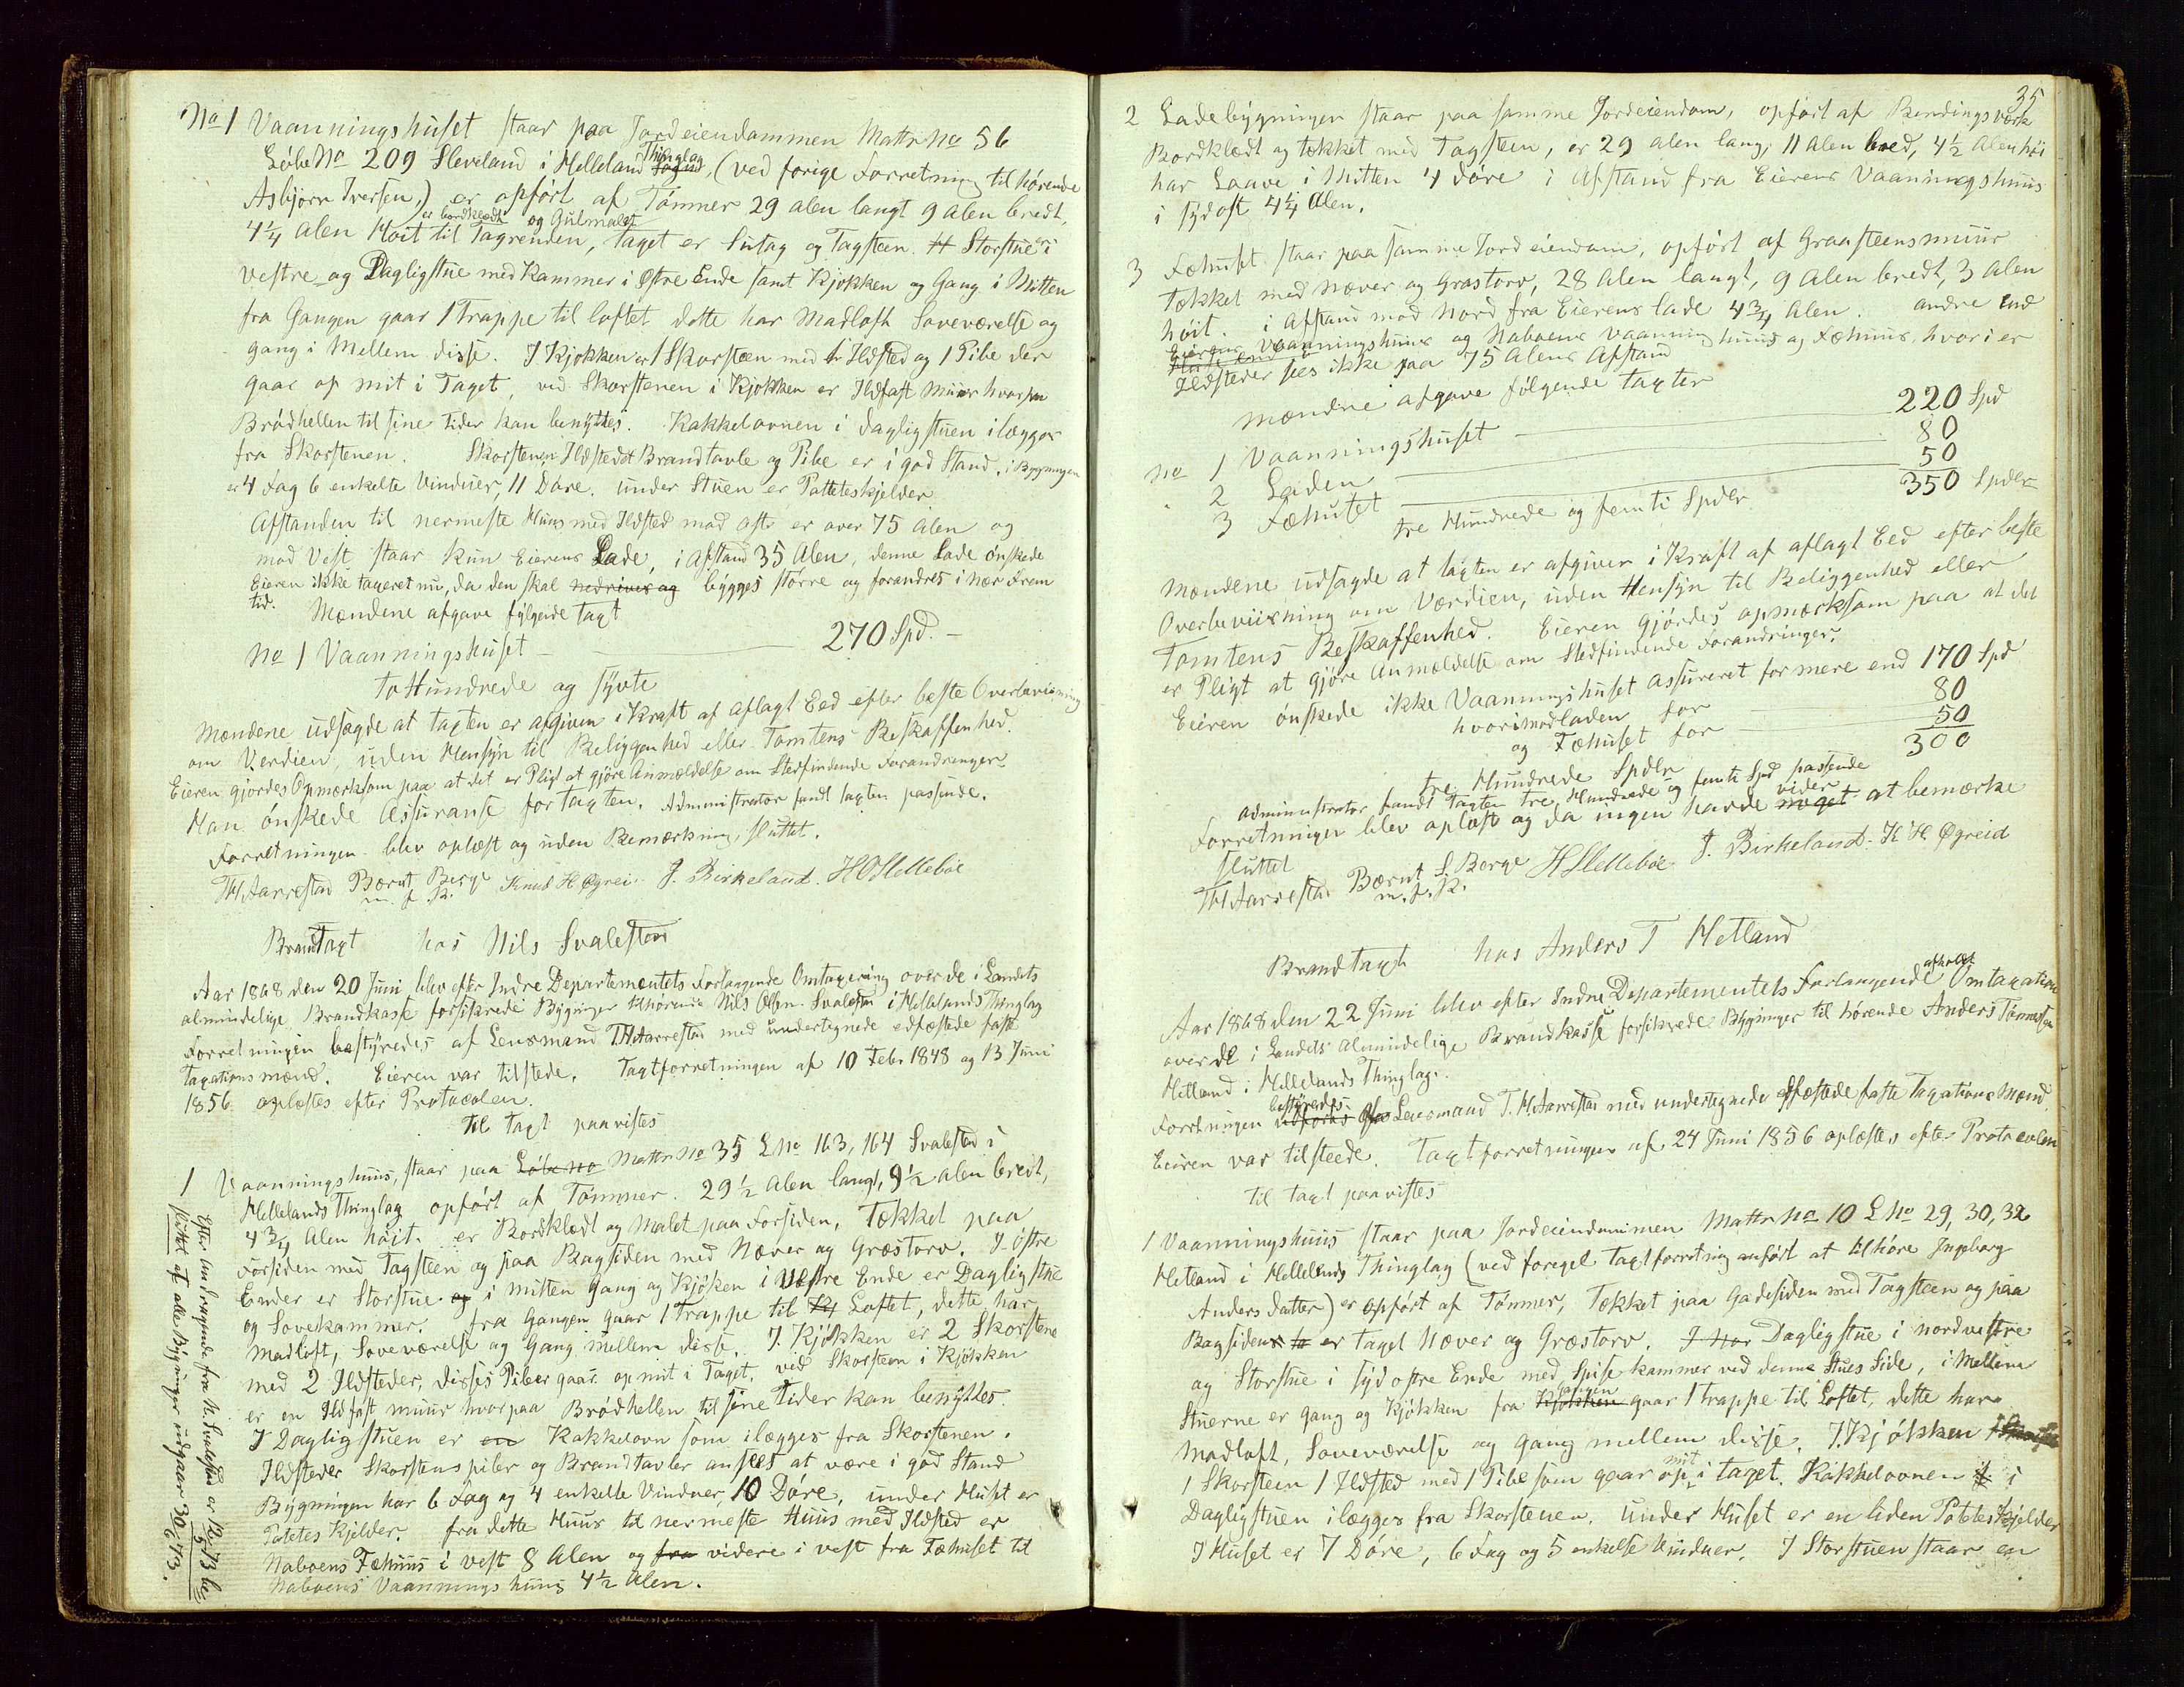 No 1 Vaanningshuset staar paa Jordeiendammen Mattr No 56
Løbe No 209 Sleveland i Helleland Thinglag Sogn, (ved forige Forretning til hørende
Asbjørn Iversen,) er opført af Tømmer 29 alen langt 9 Alen bredt,
er bordklædt og Gulmalet
4 1/4 Alen Høit til Tagrenden, taget er Sutag og Tagsteen. H Storstue i
vestre og Dagligstue med Kammer i Østre Ende samt Kjøkken og Gang i Mitten
fra Gangen gaar 1 Trappe til loftet dette har Madloft Soveværelse og
gang i Mellem disse. I Kjøkken er 1 Skorsteen med 1 Ildsted og 1 Pibe der
gaar op mit i Taget, ved Skorstenen i Kjøkken er Ildfast Muur hvorpaa
Brødhellen til sine tider kan benyttes. Kakkelovnen i dagligstuen ilægges
fra Skorstenen. Skorstenen Ildstedet Brandtavle og Pibe er i god Stand. i Bygningen
er 4 Fag 6 enkelte Vinduer, 11 Døre. under Stuen er Potteteskjelder
Afstanden til nermeste Huus med Ildsted mod øst er over 75 Alen og
mod Vest staar kun Eierens Lade, i Afstand 35 Alen, denne Lade ønskede
Eieren ikke taxeret nu, da den skal nedrives og bygges større og forandres i nær Frem
tid.
Mændene afgave følgende taxt
No 1 Vaanningshuset — 270 Spd. —
to Hundrede og syvti
Mændene udsagde at taxten er afgiven i Kraft af aflagt Eed efter beste Overbeviisning
om Verdien, uden Hensyn til Beliggenhed eller Tomtens Beskaffenhed.
Eieren gjordes Opmærksom paa at det er Pligt at gjøre Anmældelse om Stedfindende Forandringer.
Han ønskede Assuranse for Taxten. Administrator fandt taxten passende.
Forretningen blev oplæst og uden Bemærkning sluttet.
TH Aarrestad Bærnt Berge Knud H. Øgrei J. Birkeland. H O Slettebøe
m. f. P.
Brandtaxt hos Nils Svalestad
Aar 1868 den 20 Juni blev efter Indre Departementets Forlangende Omtaxering over de i Landets
almindelige Brandkasse forsikrede Bygninger tilhørende Nils Olsen Svalestad i Hellelands Thinglag
Forretningen bestyredes af Lensmand TH Aarrestad med undertegnede edfæstede faste
Taxationsmænd. Eieren var tilstede. Taxtforretningen af 10 Febr 1848 og 13 Juni
1856 oplæstes efter Protocolen.
til taxt paavistes
1 Vaanningshuus, staar paa Løbe No Mattr No 35 L No 163, 164 Svalestad i
Hellelands Thinglag opført af Tømmer. 29 1/2 Alen langt, 9 1/2 alen bredt,
4 3/4 Alen høit. er Bordklædt og Malet paa Forsiden, Tækket paa
Forsiden med Tagsteen og paa Bagsiden med Næver og Græstorv. I østre
Ender er Storstue og i mitten Gang og Kjøken i Vestre Ende er Dagligstue
og Sovekammer. fra Gangen gaar 1 Trappe til Kj Loftet, dette har
Madloft, Soveværelse og Gang mellem disse. I Kjøkken er 2 Skorstene
med 2 Ildsteder, disses Piber gaar op mit i Taget, ved Skorsteen i Kjøkken
er en Ildfast muur hvorpaa Brødhellen til sine tider kan benyttes.
I Dagligstuen er en Kakkelovn som ilægges fra Skorstenen.
Ildsteder Skorstenspiber og Brandtavler ansees at være i god Stand
Bygningen har 6 Fag og 4 enkelte Vinduer, 10 Døre, under Huset er
Potetes Kjelder. fra dette Huus til nermeste Huus med Ildsted er
Naboens Fæhuus i vest 8 Alen og fra videre i vest fra Fæhuset til
Naboens Vaannings huus 4 1/2 Alen.
Efter Andragende fra N. Svalestad er B be
sluttet af alle Bygninger udgaar 30/6 73.
35
2 Ladebygningen staar paa samme Jordeiendom, opført af Bendingsværk
Bordklædt og tækket med Tagsteen, er 29 alen lang, 11 Alen bred, 4 1/2 Alen høi
har Laave i Mitten 4 døre i Afstand fra Eierens Vaanningshuus
i Sydost 4 1/4 Alen.
3 Fæhuset staar paa samme Jord eiendom, opført af Graasteensmuur
Tækket med Næver og Græstorv, 28 Alen langt, 9 Alen bredt, 3 Alen
høit. i Afstand mod Nord fra Eierens lade 4 3/4 Alen. andre end
Eierens Vaanningshuus og Naboens Vaanning huus og Fæhuus, hvori er
Ildsteder sees ikke paa 75 Alens Afstand
Mændene afgave følgende taxter
No 1 Vaanningshuset — 220 Spd
2 Laden — 80
3 Fæhuset — 50
350 Spdlr
tre Hundrede og femti Spdlr
Mændene udsagde at taxten er afgiven i Kraft af aflagt Eed efter beste
Overbeviisning om Værdien, uden Hensyn til Beliggenhed eller
Tomtens Beskaffenhed. Eieren gjørdes opmærksom paa at det
er Pligt at gjøre Anmældelse om Stedfindende Forandringer.
Eieren ønskede ikke Vaanningshuset assureret for mere end 170 Spd
hvorimod laden for — 80
og Fæhuset for — 50
300
tre Hundrede Spdlr
Administrator fandt Taxten tre Hundrede og femti Spd passende
Forretningen blev oplæst og da ingen havde noget vider at bemærke
sluttet
TH Aarrestad Bærnt S. Berge H Slettebøe J. Birkeland. K H. Øgreid
m. f. P.
Brandtaxt hos Anders T Hetland
Aar 1868 den 22 Juni blev efter Indre Departementets Forlangende afholdt Omtaxation
over de i Landets almindelige Brandkasse forsikrede Bygninger til hørende Anders Tønnesen
Hetland i Hellelands Thinglag.
bestyredes
Forretningen udførtes af Lensmand T. H Aarrestad med undertegnede edfæstede faste Taxations Mænd.
Eieren var tilsteede. Taxtforretningen af 24 Juni 1856 oplæstes efter Protocolen
til taxt paavistes
1 Vaanningshuus staar paa Jordeiendommen Mattr No 10 L No 29, 30, 32
Hetland i Hellelands Thinglag (ved foregel Taxtforretning anført at tilhøre Ingeborg
Anders datter) er opført af Tømmer, Tækket paa Gadesiden med Tagsteen og paa
Bagsiden er taget Næver og Græstorv. I Nor Dagligstue i nordvestre
og Storstue i sydostre Ende med Spisekammer ved denne Stues Side, i Mellem
Stuerne er gang og Kjøkken fra Kjøkken gangen gaar 1 Trappe til Loftet, dette har
Madloft, Soveværelse og Gang mellem disse. I Kjøkken
1 Skorsteen 1 Ildsted med 1 Pibe som gaar op mit i taget. Kakkelovnen i
Dagligstuen ilægges fra Skorstenen. under Huset er en liden Potetes Kjelder
I Huset er 7 Døre, 6 Fag og 5 enkelte Vinduer. I Storstuen staar en